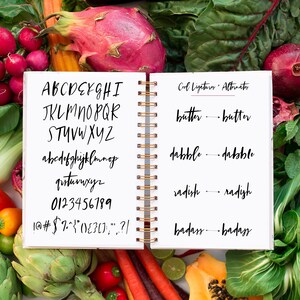 ABCDEFGHI
JKLMNOPQR
STUVWXYZ
abcdefghijklmnop
qrstuvwxyz
0123456789
Cool Ligatures + Alternates
butter → butter
dabble → dabble
radish → radish
badass → badass